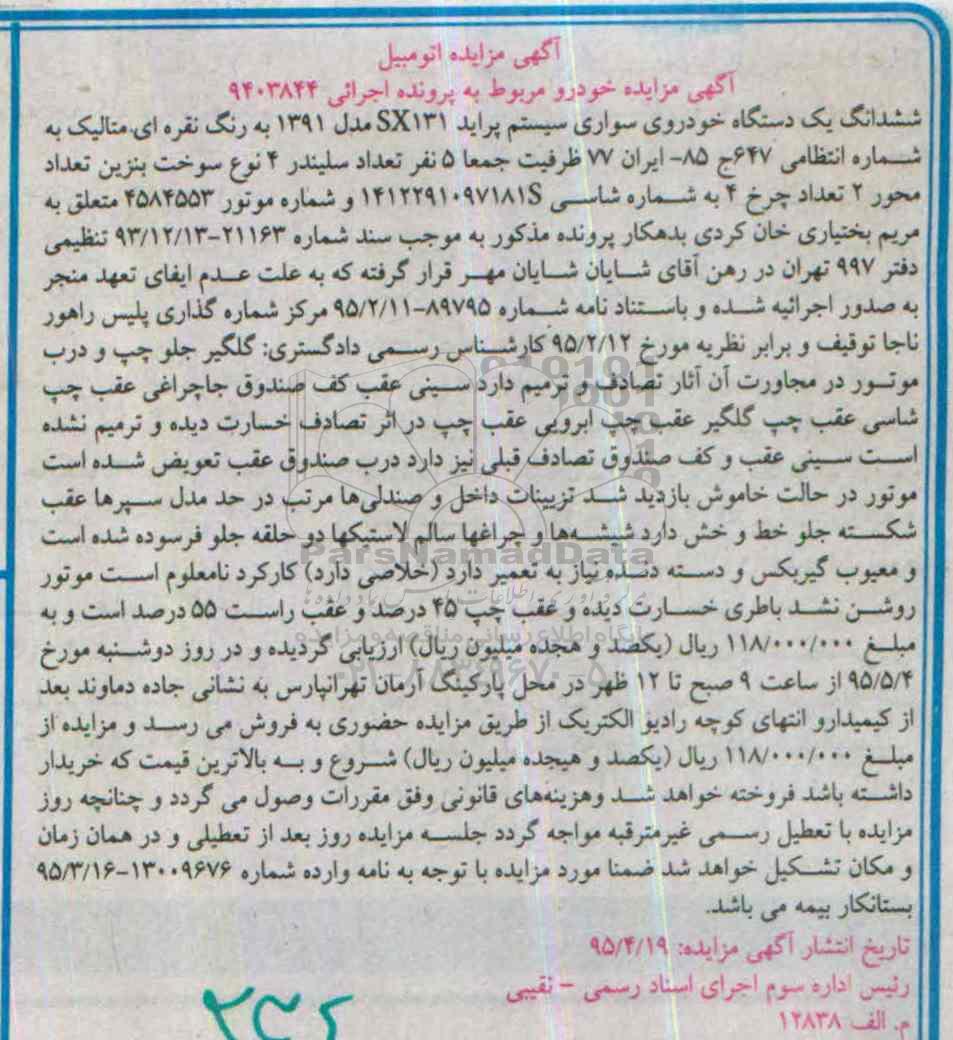 آگهی مزایده اتومبیل
آگهی مزایده خودرو مربوط به پرونده اجرائی ۹۴۰۳۸۴۴
ششدانگ یک دستگاه خودروی سواری سیستم پراید SX۱۳۱ مدل ۱۳۹۱ به رنگ نقره ای متالیک به
شماره انتظامی ۶۴۷ج ۸۵- ایران ۷۷ ظرفیت جمعا ۵ نفر تعداد سلیندر ۴ نوع سوخت بنزین تعداد
محور ۲ تعداد چرخ ۴ به شماره شاسی S۱۴۱۲۲۹۱۰۹۷۱۸۱ و شماره موتور ۴۵۸۴۵۵۳ متعلق به
مریم بختیاری خان کردی بدهکار پرونده مذکور به موجب سند شماره ۲۱۱۶۳-۹۳/۱۲/۱۳ تنظیمی
دفتر ۹۹۷ تهران در رهن آقای شایان شایان مهر قرار گرفته که به علت عدم ایفای تعهد منجر
به صدور اجرائیه شده و باستناد نامه شماره ۸۹۷۹۵-۹۵/۲/۱۱ مرکز شماره گذاری پلیس راهور
ناجا توقیف و برابر نظریه مورخ ۹۵/۲/۱۲ کارشناس رسمی دادگستری: گلگیر جلو چپ و درب
موتور در مجاورت آن آثار تصادف و ترمیم دارد سینی عقب کف صندوق جاچراغی عقب چپ
شاسی عقب چپ گلگیر عقب چپ ابرویی عقب چپ در اثر تصادف خسارت دیده و ترمیم نشده
است سینی عقب و کف صندوق تصادف قبلی نیز دارد درب صندوق عقب تعویض شده است
موتور در حالت خاموش بازدید شد تزیینات داخل و صندلی‌ها مرتب در حد مدل سپرها عقب
شکسته جلو خط و خش دارد شیشه‌ها و چراغها سالم لاستیکها دو حلقه جلو فرسوده شده است
و معیوب گیربکس و دسته دنده نیاز به تعمیر دارد (خلاصی دارد) کارکرد نامعلوم است موتور
روشن نشد باطری خسارت دیده و عقب چپ ۴۵ درصد و عقب راست ۵۵ درصد است و به
مبلغ ۱۱۸/۰۰۰/۰۰۰ ریال (یکصد و هجده میلیون ریال) ارزیابی گردیده و در روز دوشنبه مورخ
۹۵/۵/۴ از ساعت ۹ صبح تا ۱۲ ظهر در محل پارکینگ آرمان تهرانپارس به نشانی جاده دماوند بعد
از کیمیدارو انتهای کوچه رادیو الکتریک از طریق مزایده حضوری به فروش می رسد و مزایده از
مبلغ ۱۱۸/۰۰۰/۰۰۰ ریال (یکصد و هیجده میلیون ریال) شروع و به بالاترین قیمت که خریدار
داشته باشد فروخته خواهد شد وهزینه‌های قانونی وفق مقررات وصول می گردد و چنانچه روز
مزایده با تعطیل رسمی غیرمترقبه مواجه گردد جلسه مزایده روز بعد از تعطیلی و در همان زمان
و مکان تشکیل خواهد شد ضمنا مورد مزایده با توجه به نامه وارده شماره ۱۳۰۰۹۶۷۶-۹۵/۳/۱۶
بستانکار بیمه می باشد.
تاریخ انتشار آگهی مزایده: ۹۵/۴/۱۹
رئیس اداره سوم اجرای اسناد رسمی - نقیبی
م. الف ۱۲۸۳۸
ParsNamadData